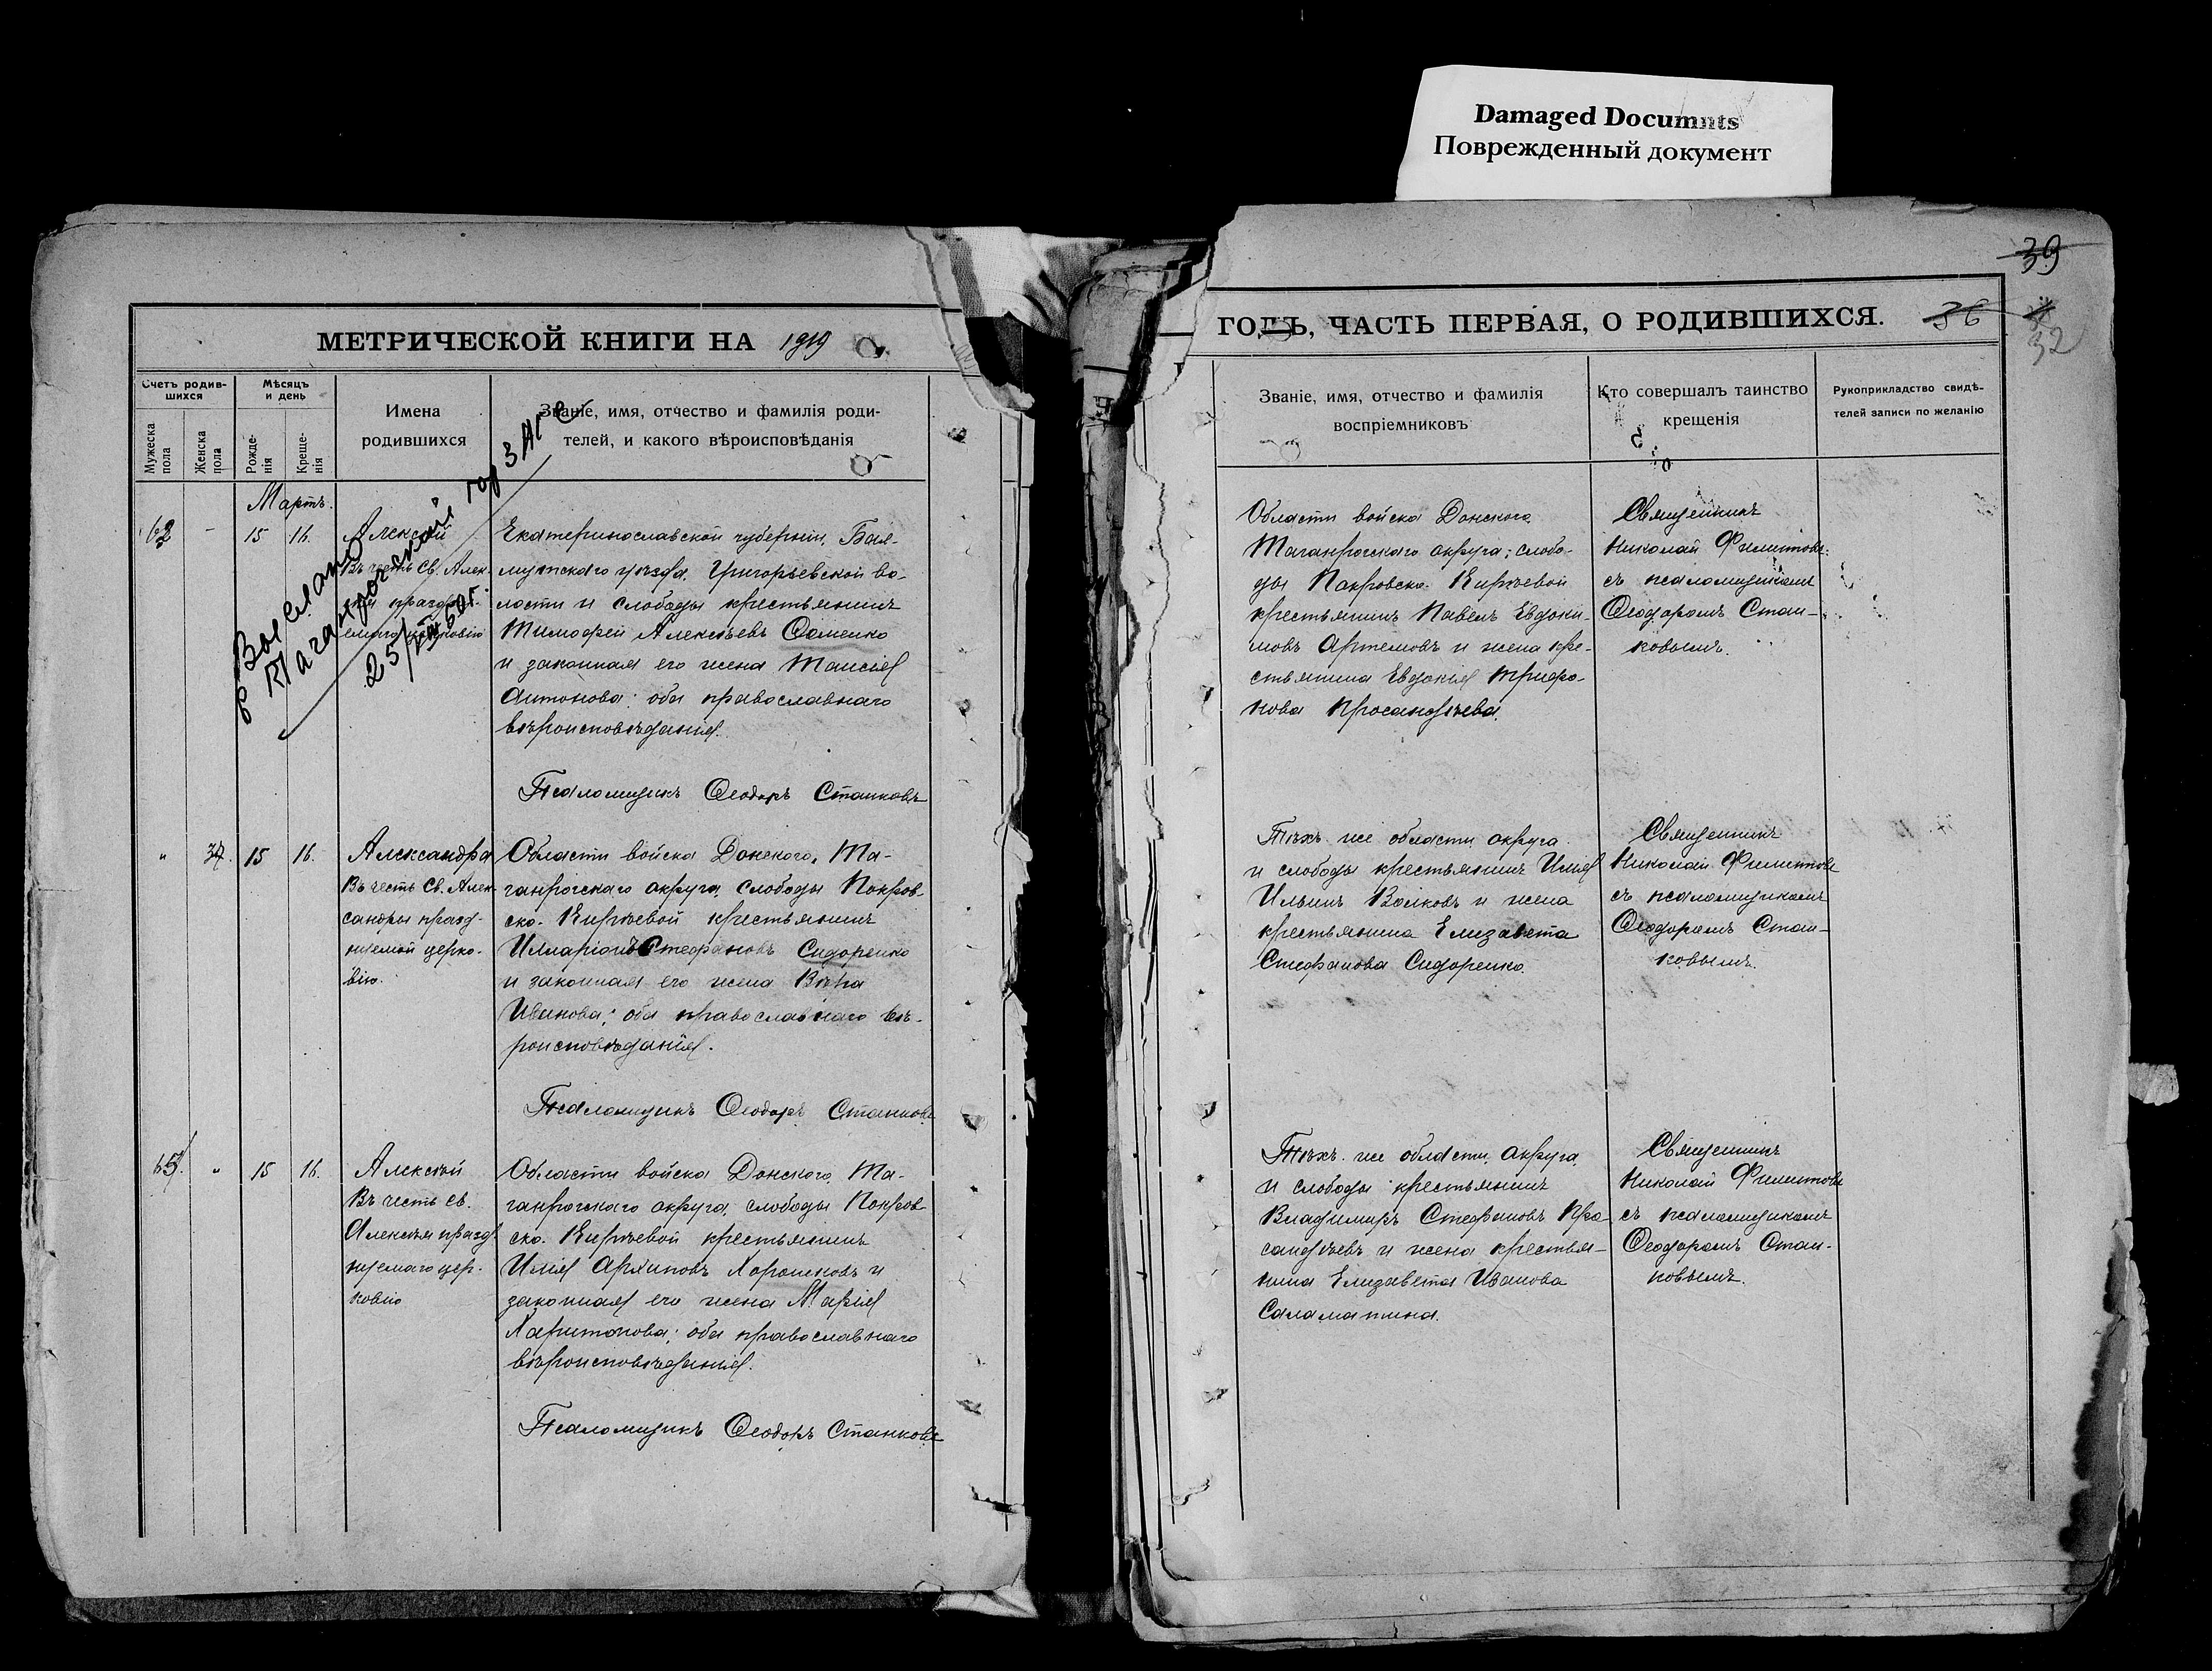 Damaged Documents
Поврежденный документ
39
МЕТРИЧЕСКОЙ КНИГИ НА 1919
ГОДЪ, ЧАСТЬ ПЕРВАЯ, О РОДИВШИХСЯ.
36
32
Счетъ родив-
шихся
Мужеска
пола
Женска
пола
Мѣсяцъ
и день
Рожде-
нія
Креще-
нія
Имена
родившихся
Званіе, имя, отчество и фамилія роди-
телей, и какого вѣроисповѣданія
Званіе, имя, отчество и фамилія
воспріемниковъ
Кто совершалъ таинство
крещенія
Рукоприкладство свидѣ-
телей записи по желанію
Выслано
в Таганрогский гор ЗАГС
Мартъ.
62 - 15 16.
Алексѣй
Въ честь Св. Алек-
емаго церковію
Екатеринославской губерніи, Бах-
мутскаго уѣзда, Григорьевской во-
лости и слободы крестьянинъ
Тимофей Алексѣевъ Ѳоменко
и законная его жена Таисія
Антонова; оба православнаго
вѣроисповѣданія.
Псаломщикъ Ѳеодоръ Станковъ
Области войска Донского,
Таганрогскаго округа; слобо-
ды Покровско-Кирѣевой
крестьянинъ Павелъ Евдоки-
мовъ Артемовъ и жена кре-
стьянина Евдокія Трифо-
нова Просандѣева.
Священникъ
Николай Филиповъ
съ псаломщикомъ
Ѳеодоромъ Стан-
ковымъ.
" 37. 15 16.
Александра
Въ честь Св. Алек-
сандры празд-
нуемой церко-
вію.
Области войска Донского, Та-
ганрогскаго округа, слободы Покров-
ско-Кирѣевой крестьянинъ
Илларіонъ Стефановъ Сидоренко
и законная его жена Вѣра
Иванова; оба православнаго вѣ-
роисповѣданія.
Псаломщикъ Ѳеодоръ Станковъ
Тѣхъ же области округа
и слободы крестьянинъ Илія
Ильинъ Волковъ и жена
крестьянина Елизавета
Стефанова Сидоренко.
Священникъ
Николай Филиповъ
съ псаломщикомъ
Ѳеодоромъ Стан-
ковымъ.
65. " 15 16.
Алексѣй
Въ честь св.
Алексѣя празд-
нуемаго цер-
ковію
Области войска Донского, Та-
ганрогскаго округа, слободы Покров-
ско-Кирѣевой крестьянинъ
Илія Архиповъ Хорошковъ и
законная его жена Марія
Харитонова; оба православнаго
вѣроисповѣданія.
Псаломщикъ Ѳеодоръ Станковъ
Тѣхъ же области, округа,
и слободы крестьянинъ
Владимиръ Стефановъ Про-
сандѣевъ и жена крестья-
нина Елизавета Иванова
Саламатина.
Священникъ
Николай Филиповъ
съ псаломщикомъ
Ѳеодоромъ Стан-
ковымъ.